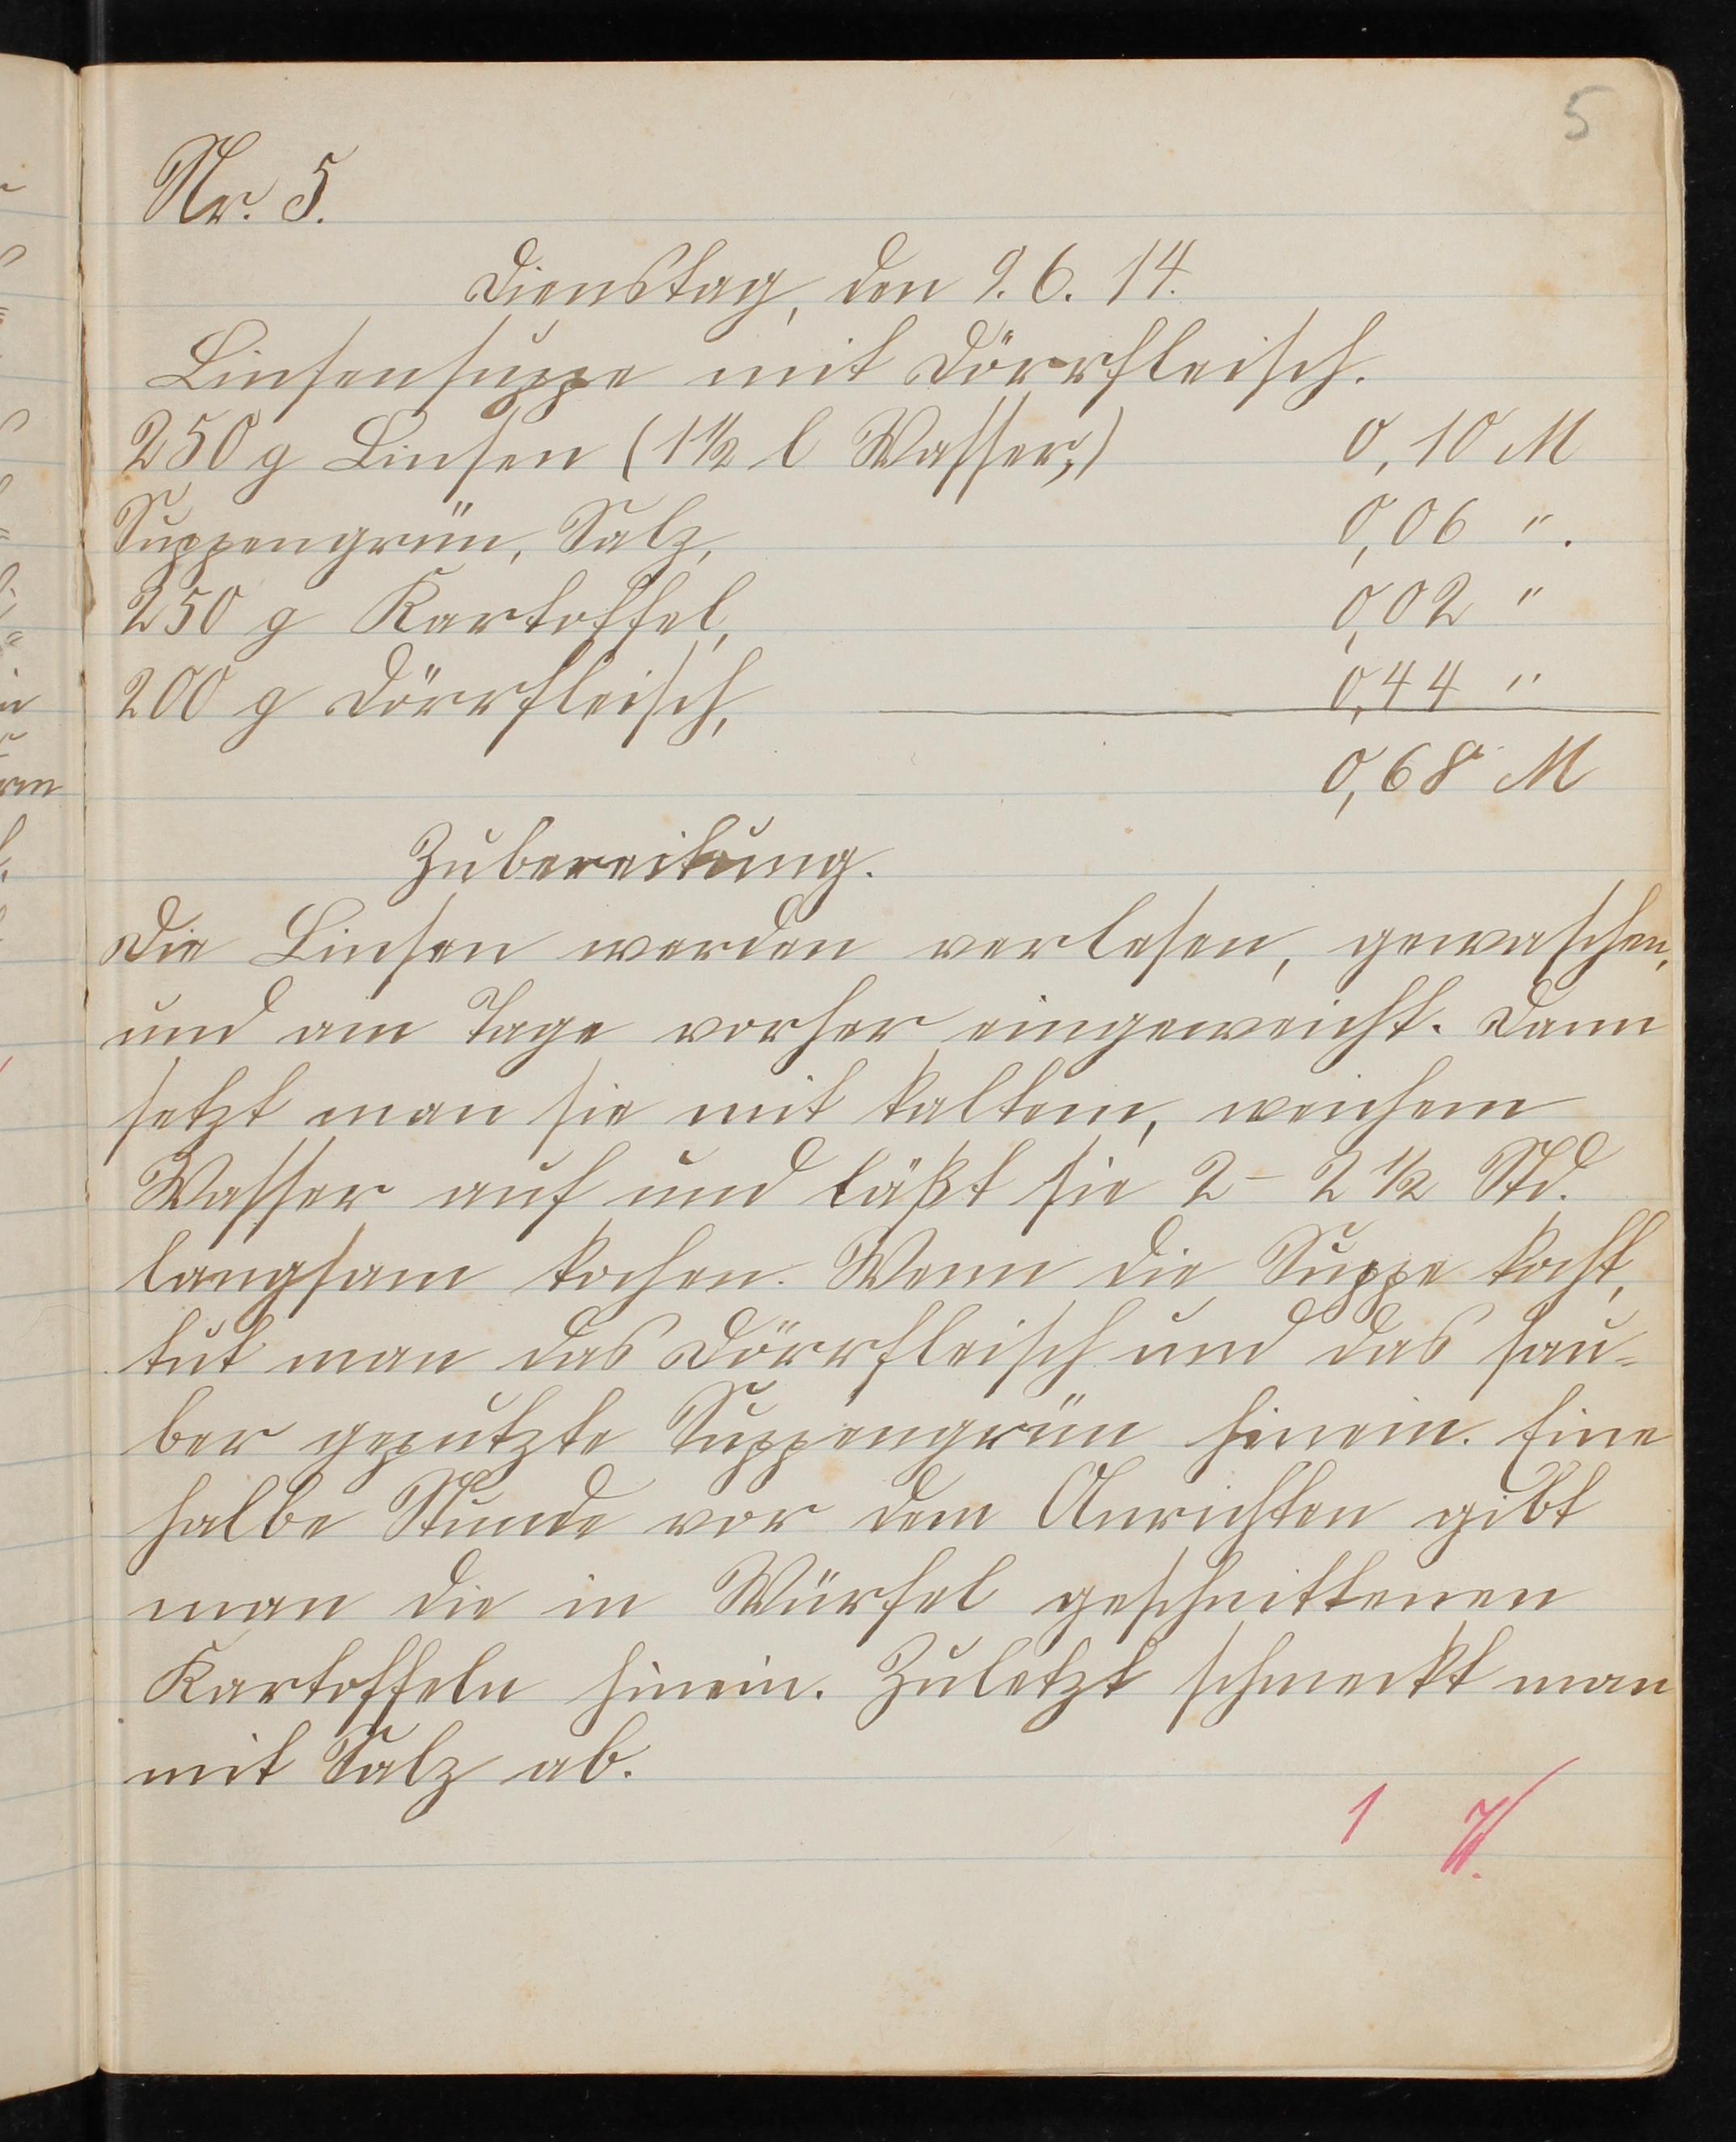 5
Nr. 5.
Dienstag, den 9. 6. 14.
Linsensuppe mit Dörrfleisch.
250 g Linsen (1 1/2 l Wasser,) 0,10 M
Suppengrün, Salz, 0,06 ".
250 g Kartoffel, 0,02 "
200 g Dörrfleisch, 0,44 "
0,68 M
Zubereitung.
Die Linsen werden verlesen, gewaschen,
und am Tage vorher eingeweicht. Dann
setzt man sie mit kaltem, weichem
Wasser auf und läßt sie 2 - 2 1/2 Std.
langsam kochen. Wenn die Suppe kocht,
tut man das Dörrfleisch und das sau-
ber geputzte Suppengrün hinein. Eine
halbe Stunde vor dem Anrichten gibt
man die in Würfel geschnittenen
Kartoffeln hinein. Zuletzt schmeckt man
mit Salz ab.
1